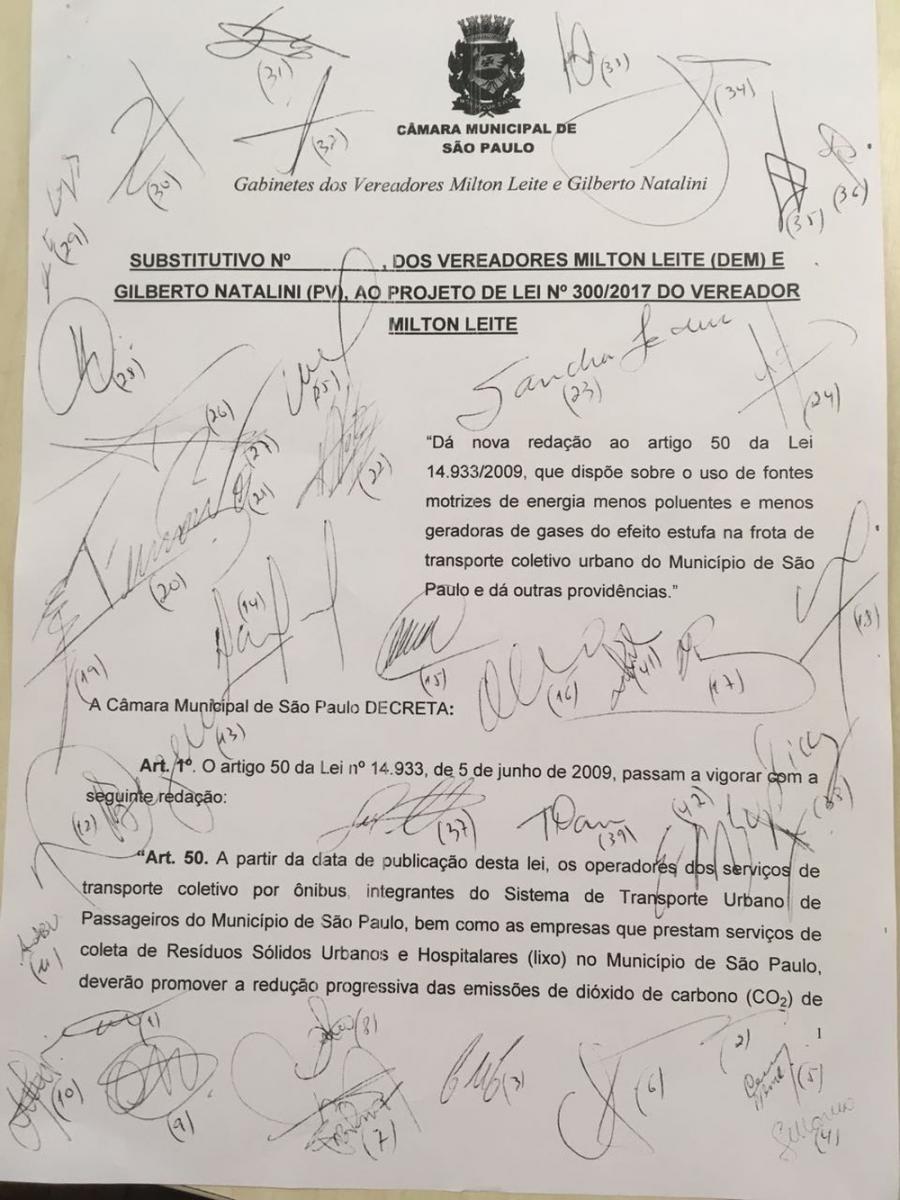 (31)
(33)
(34)
(32)
(30)
(35)
(36)
(29)
CÂMARA MUNICIPAL DE
SÃO PAULO
Gabinetes dos Vereadores Milton Leite e Gilberto Natalini
SUBSTITUTIVO Nº , DOS VEREADORES MILTON LEITE (DEM) E
GILBERTO NATALINI (PV), AO PROJETO DE LEI Nº 300/2017 DO VEREADOR
MILTON LEITE
(28)
(25)
Sandra
(23)
(24)
(26)
(27)
(22)
(21)
"Dá nova redação ao artigo 50 da Lei
14.933/2009, que dispõe sobre o uso de fontes
motrizes de energia menos poluentes e menos
geradoras de gases do efeito estufa na frota de
transporte coletivo urbano do Município de São
Paulo e dá outras providências."
(20)
(14)
(18)
(19)
(15)
(16)
(41)
(17)
A Câmara Municipal de São Paulo DECRETA:
(13)
Art. 1º. O artigo 50 da Lei nº 14.933, de 5 de junho de 2009, passam a vigorar com a
seguinte redação:
(12)
(37)
(39)
(42)
"Art. 50. A partir da data de publicação desta lei, os operadores dos serviços de
transporte coletivo por ônibus, integrantes do Sistema de Transporte Urbano de
Passageiros do Município de São Paulo, bem como as empresas que prestam serviços de
coleta de Resíduos Sólidos Urbanos e Hospitalares (lixo) no Município de São Paulo,
deverão promover a redução progressiva das emissões de dióxido de carbono (CO₂) de
(11)
1
(1)
(8)
(2)
(10)
(9)
(7)
(3)
(6)
(5)
(4)